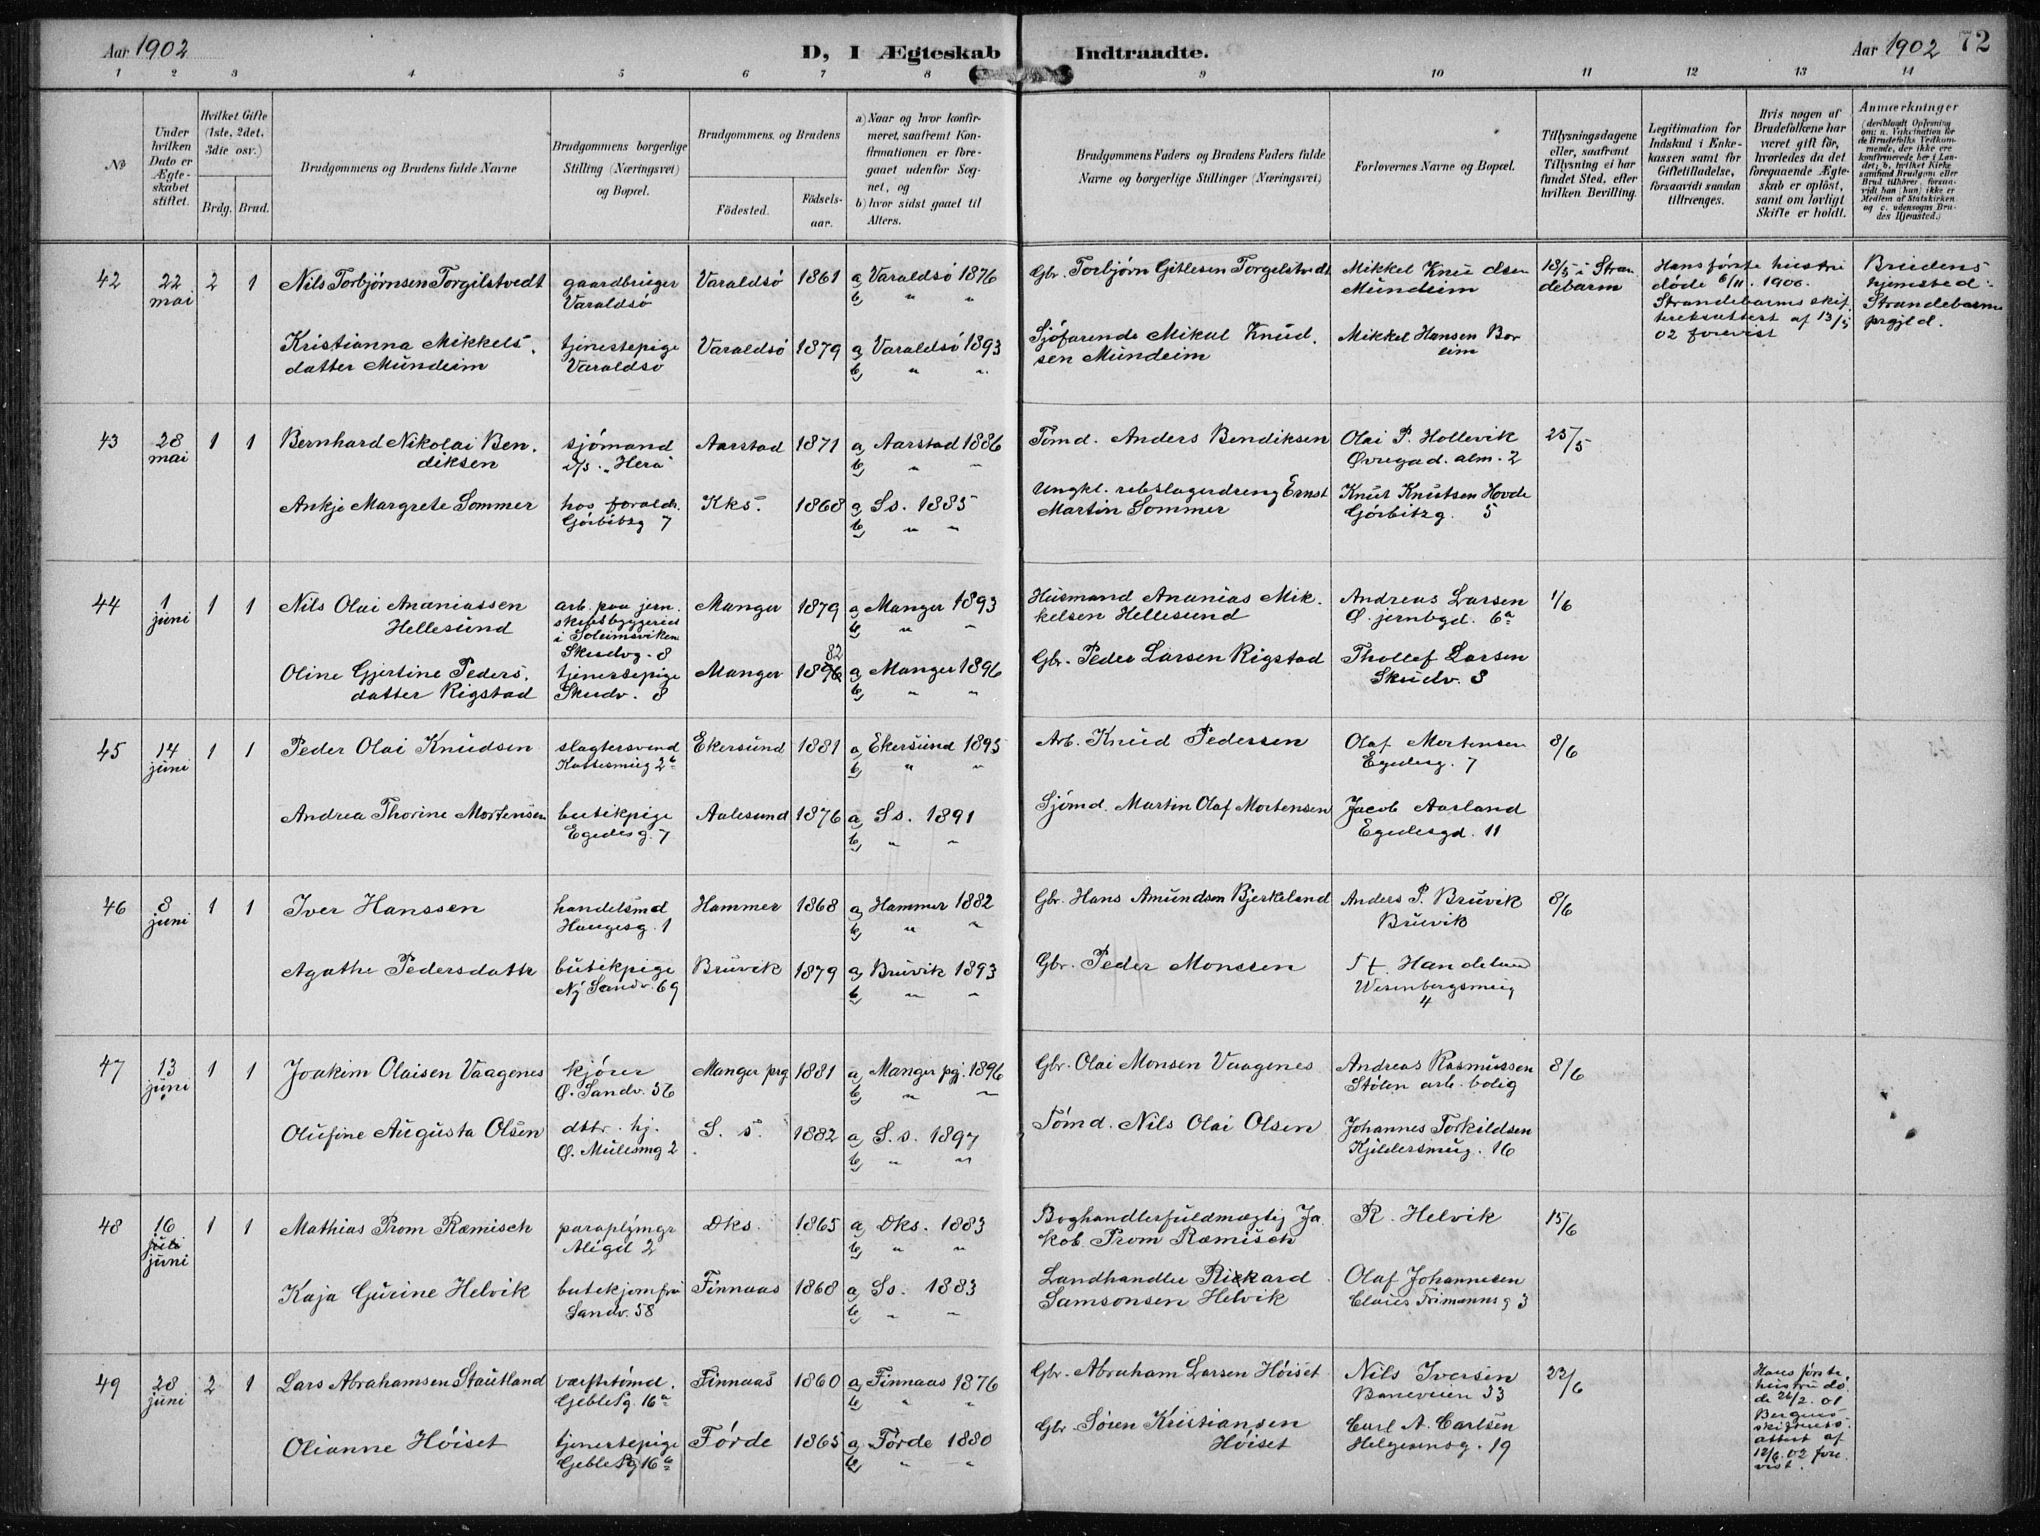 Aar 1902
D, I Ægteskab Indtraadte.
Aar 1902 72
1 2 3 4 5 6 7 8 9 10 11 12 13 14
No
Under hvilken Dato er Ægteskabet stiftet.
Hvilket Gifte (1ste, 2det, 3die osv.)
Brdg. Brud.
Brudgommens og Brudens fulde Navne
Brudgommens borgerlige Stilling (Næringsvei) og Bopæl.
Brudgommens og Brudens
Födested.
Födsels-aar.
a) Naar og hvor konfirmeret, saafremt Konfirmationen er foregaaet udenfor Sognet, og
b) hvor sidst gaaet til Alters.
Brudgommens Faders og Brudens Faders fulde Navne og borgerlige Stillinger (Næringsvei)
Forlovernes Navne og Bopæl.
Tillysningsdagene eller, saafremt Tillysning ei har fundet Sted, efter hvilken Bevilling.
Legitimation for Indskud i Enkekassen samt for Giftetilladelse, forsaavidt saadan tiltrænges.
Hvis nogen af Brudefolkene har været gift før, hvorledes da det foregaaende Ægteskab er oplöst, samt om lovligt Skifte er holdt.
Anmærkninger (deriblandt Oplysning om: a. Vakcination for de Brudefolks Vedkommende, der ikke ere konfirmerede her i Landet; b. hvilket Kirkesamfund Brudgom eller Brud tilhörer, forsaavidt han (hun) ikke er Medlem af Statskirken og c. udensogns Brudes Hjemsted.)
42 22 mai 2 1
Nils Torbjørnsen Torgilstvedt
gaardbruger
Varaldsö
Varaldsö 1861
a) Varaldsö 1876
b) " "
Gbr. Torbjørn Gitlesen Torgelstvedt
Mikkel Knudsen
Mundeim
18/5 i Stran
debarm
Hans første hustru
døde 6/11. 1900.
Strandebarms skif
teretsattest af 13/5
02 forevist
Brudens
hjemsted:
Strandebarm
prgjld.
Kristianna Mikkels.
datter Mundeim
tjenestepige
Varaldsö
Varaldsö 1879
a) Varaldsö 1893
b) " "
Sjöfarende Mikal Knud.
sen Mundeim
Mikkel Hansen Bor
eim
43 28 mai 1 1
Bernhard Nikolai Ben.
diksen
sjömand
D/S. "Hera"
Aarstad 1871
a) Aarstad 1886
b) " "
Tömd. Anders Bendiksen
Olai P. Hollevik
Øvregad. alm. 2
25/5
Ankje Margrete Sommer
hos foraldr.
Görbitzg 7
Kks. 1868
a) Ss. 1885
b) " "
Ungkl. rebslagerdreng Ernst
Martin Sommer
Knut Knutsen Hovde
Görbitzg. 5
44 1 juni 1 1
Nils Olai Ananiassen
Hellesund
arb. paa jern.
skibsbyggeriet
i Solheimsviken
Skudvg. 8
Manger 1879
a) Manger 1893
b) " "
Husmand Ananias Mik.
kelsen Hellesund
Andreas Larsen
Ø. jernbgd. 6a
1/6
Oline Gjertine Peders.
datter Rigstad
tjenestepige
Skudv. 8
Manger 1876 82
a) Manger 1896
b) " "
Gbr. Peder Larsen Rigstad
Thollef Larsen
Skudv. 8
45 14 juni 1 1
Peder Olai Knudsen
slagtersvend
Kattesmug 2b
Ekersund 1881
a) Ekersund 1895
b) " "
Arb. Knud Pedersen
Olaf Mortensen
Egedesg. 7
8/6
Andrea Thorine Mortensen
butikpige
Egedesg. 7
Aalesund 1876
a) Ss. 1891
b) " "
Sjömd. Martin Olaf Mortensen
Jacob Aarland
Egedesgd. 11
46 8 juni 1 1
Iver Hanssen
handelsmd
Haugesg. 1
Hammer 1868
a) Hammer 1882
b) " "
Gbr. Hans Amundsen Bjerkeland
Anders P. Bruvik
Bruvik
8/6
Agathe Pedersdattr
butikpige
Ny Sandv. 69
Bruvik 1879
a) Bruvik 1893
b) " "
Gbr. Peder Monssen
Wesenbergsmug
4
47 13 juni 1 1
Joakim Olaisen Vaagenes
kjörer
Ø. Sandv. 56
Manger prg 1881
a) Manger pgj. 1896
b) " "
Gbr. Olai Monsen Vaagenes
Andreas Rasmussen
Stölen arb. bolig
8/6
Olufine Augusta Olsen
dttr. hj.
Ø. Mulesmg 2
S. s. 1882
a) S. s. 1897
b) " "
Tömd. Nils Olai Olsen
Johannes Torkildsen
Kjeldersmug. 16
48 16 juli juni 1 1
Mathias Prom Ræmisch
paraplymgr
Aligil 2
Dks. 1865
a) Dks. 1883
b) " "
Boghandlerfuldmægtig Ja.
kob Prom Ræmisch
R. Helvik
15/6
Kaja Gurine Helvik
butikjomfru
Sandv. 58
Finnaas 1868
a) Ss. 1883
b) " "
Landhandler Rickard
Samsonsen Helvik
Olaf Johannesen
Claus Frimannsg 3
49 28 juni 2 1
Lars Abrahamsen Stautland
værftstömd.
Gebles g. 16a
Finnaas 1860
a) Finnaas 1876
b) " "
Gbr. Abraham Larsen Höiset
Nils Iversen
Baneveien 33
22/6
Hans første
hustru dö.
de 26/2. 01
Bergens
skifterets
attest af
12/6.02 fore
vist.
Olianne Höiset
tjenestepige
Gebles g 16b
Förde 1865
a) Förde 1880
b) " "
Gbr. Sören Kristiansen
Höiset
Carl A. Carlsen
Helgesensg. 19